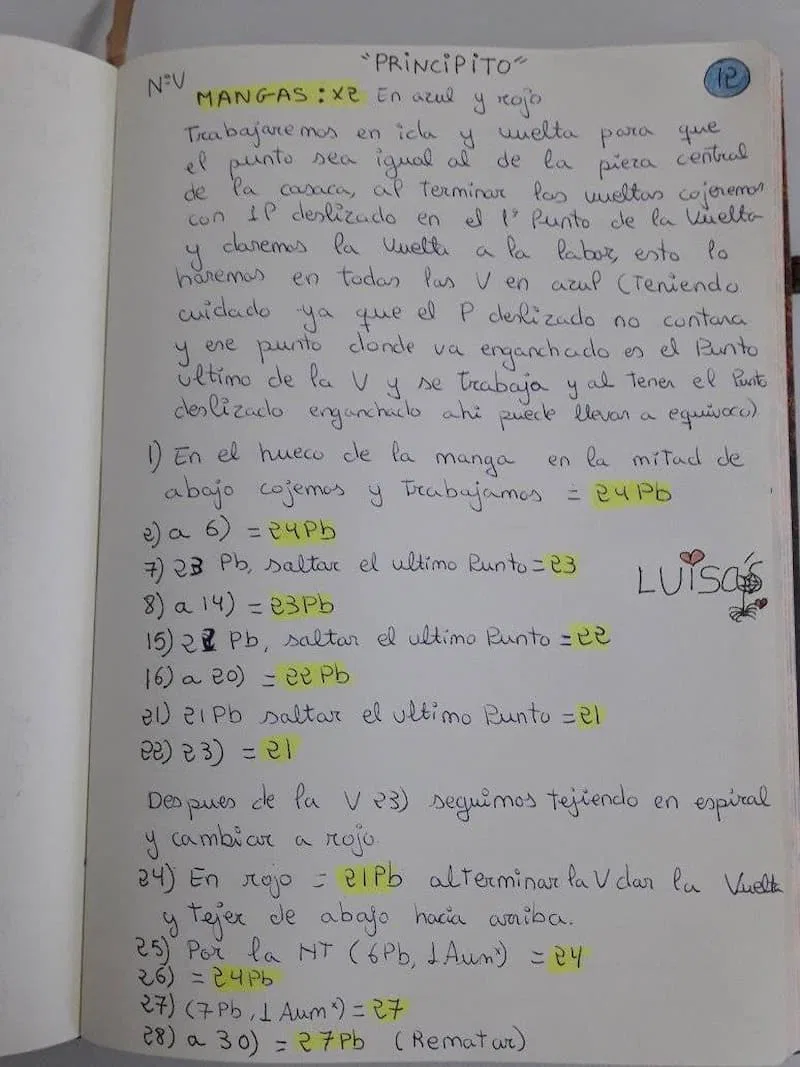 "PRINCIPITO"
12
NºV
MANGAS: X2 En azul y rojo
Trabajaremos en ida y vuelta para que
el punto sea igual al de la pieza central
de la casaca, al terminar las vueltas cojeremos
con 1P deslizado en el 1º Punto de la Vuelta
y daremos la vuelta a la labor, esto lo
haremos en todas las V en azul (Teniendo
cuidado ya que el P deslizado no contara
y ese punto donde va enganchado es el Punto
ultimo de la V y se trabaja y al tener el Punto
deslizado enganchado ahi puede llevar a equivoco)
1) En el hueco de la manga en la mitad de
abajo cojemos y trabajamos = 24Pb
2) a 6) = 24Pb
7) 23 Pb, saltar el ultimo Punto = 23
LUISA'S
8) a 14) = 23Pb
15) 22 Pb, saltar el ultimo Punto = 22
16) a 20) = 22Pb
21) 21Pb saltar el ultimo Punto = 21
22) 23) = 21
Despues de la V 23) seguimos tejiendo en espiral
y cambiar a rojo
24) En rojo = 21Pb al terminar la V dar la Vuelta
y tejer de abajo hacia arriba.
25) Por la HT (6Pb, 1 Aumˣ) = 24
26) = 24Pb
27) (7Pb, 1 Aumˣ) = 27
28) a 30) = 27Pb (Rematar)